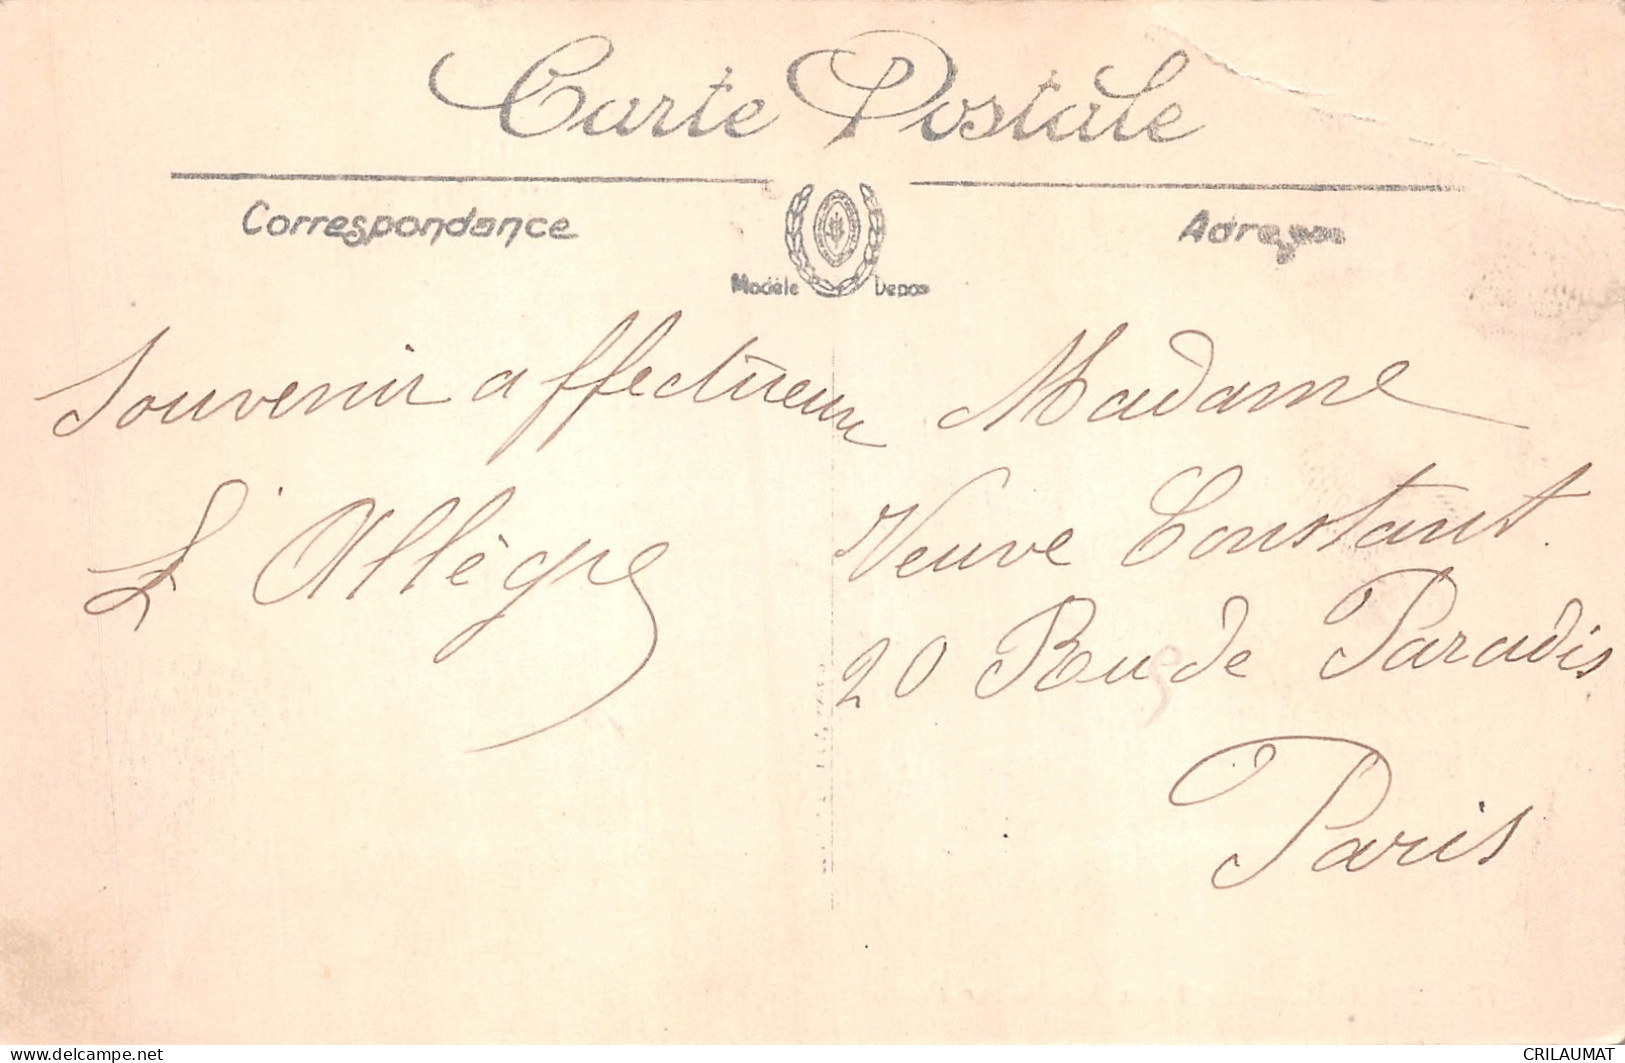 Carte Postale
Correspondance
Adresse
Modèle Depos
Souvenir affectueux
L Allègre
Madame
Veuve Constant
20 Rue de Paradis
Paris
www.delcampe.net
CRILAUMAT